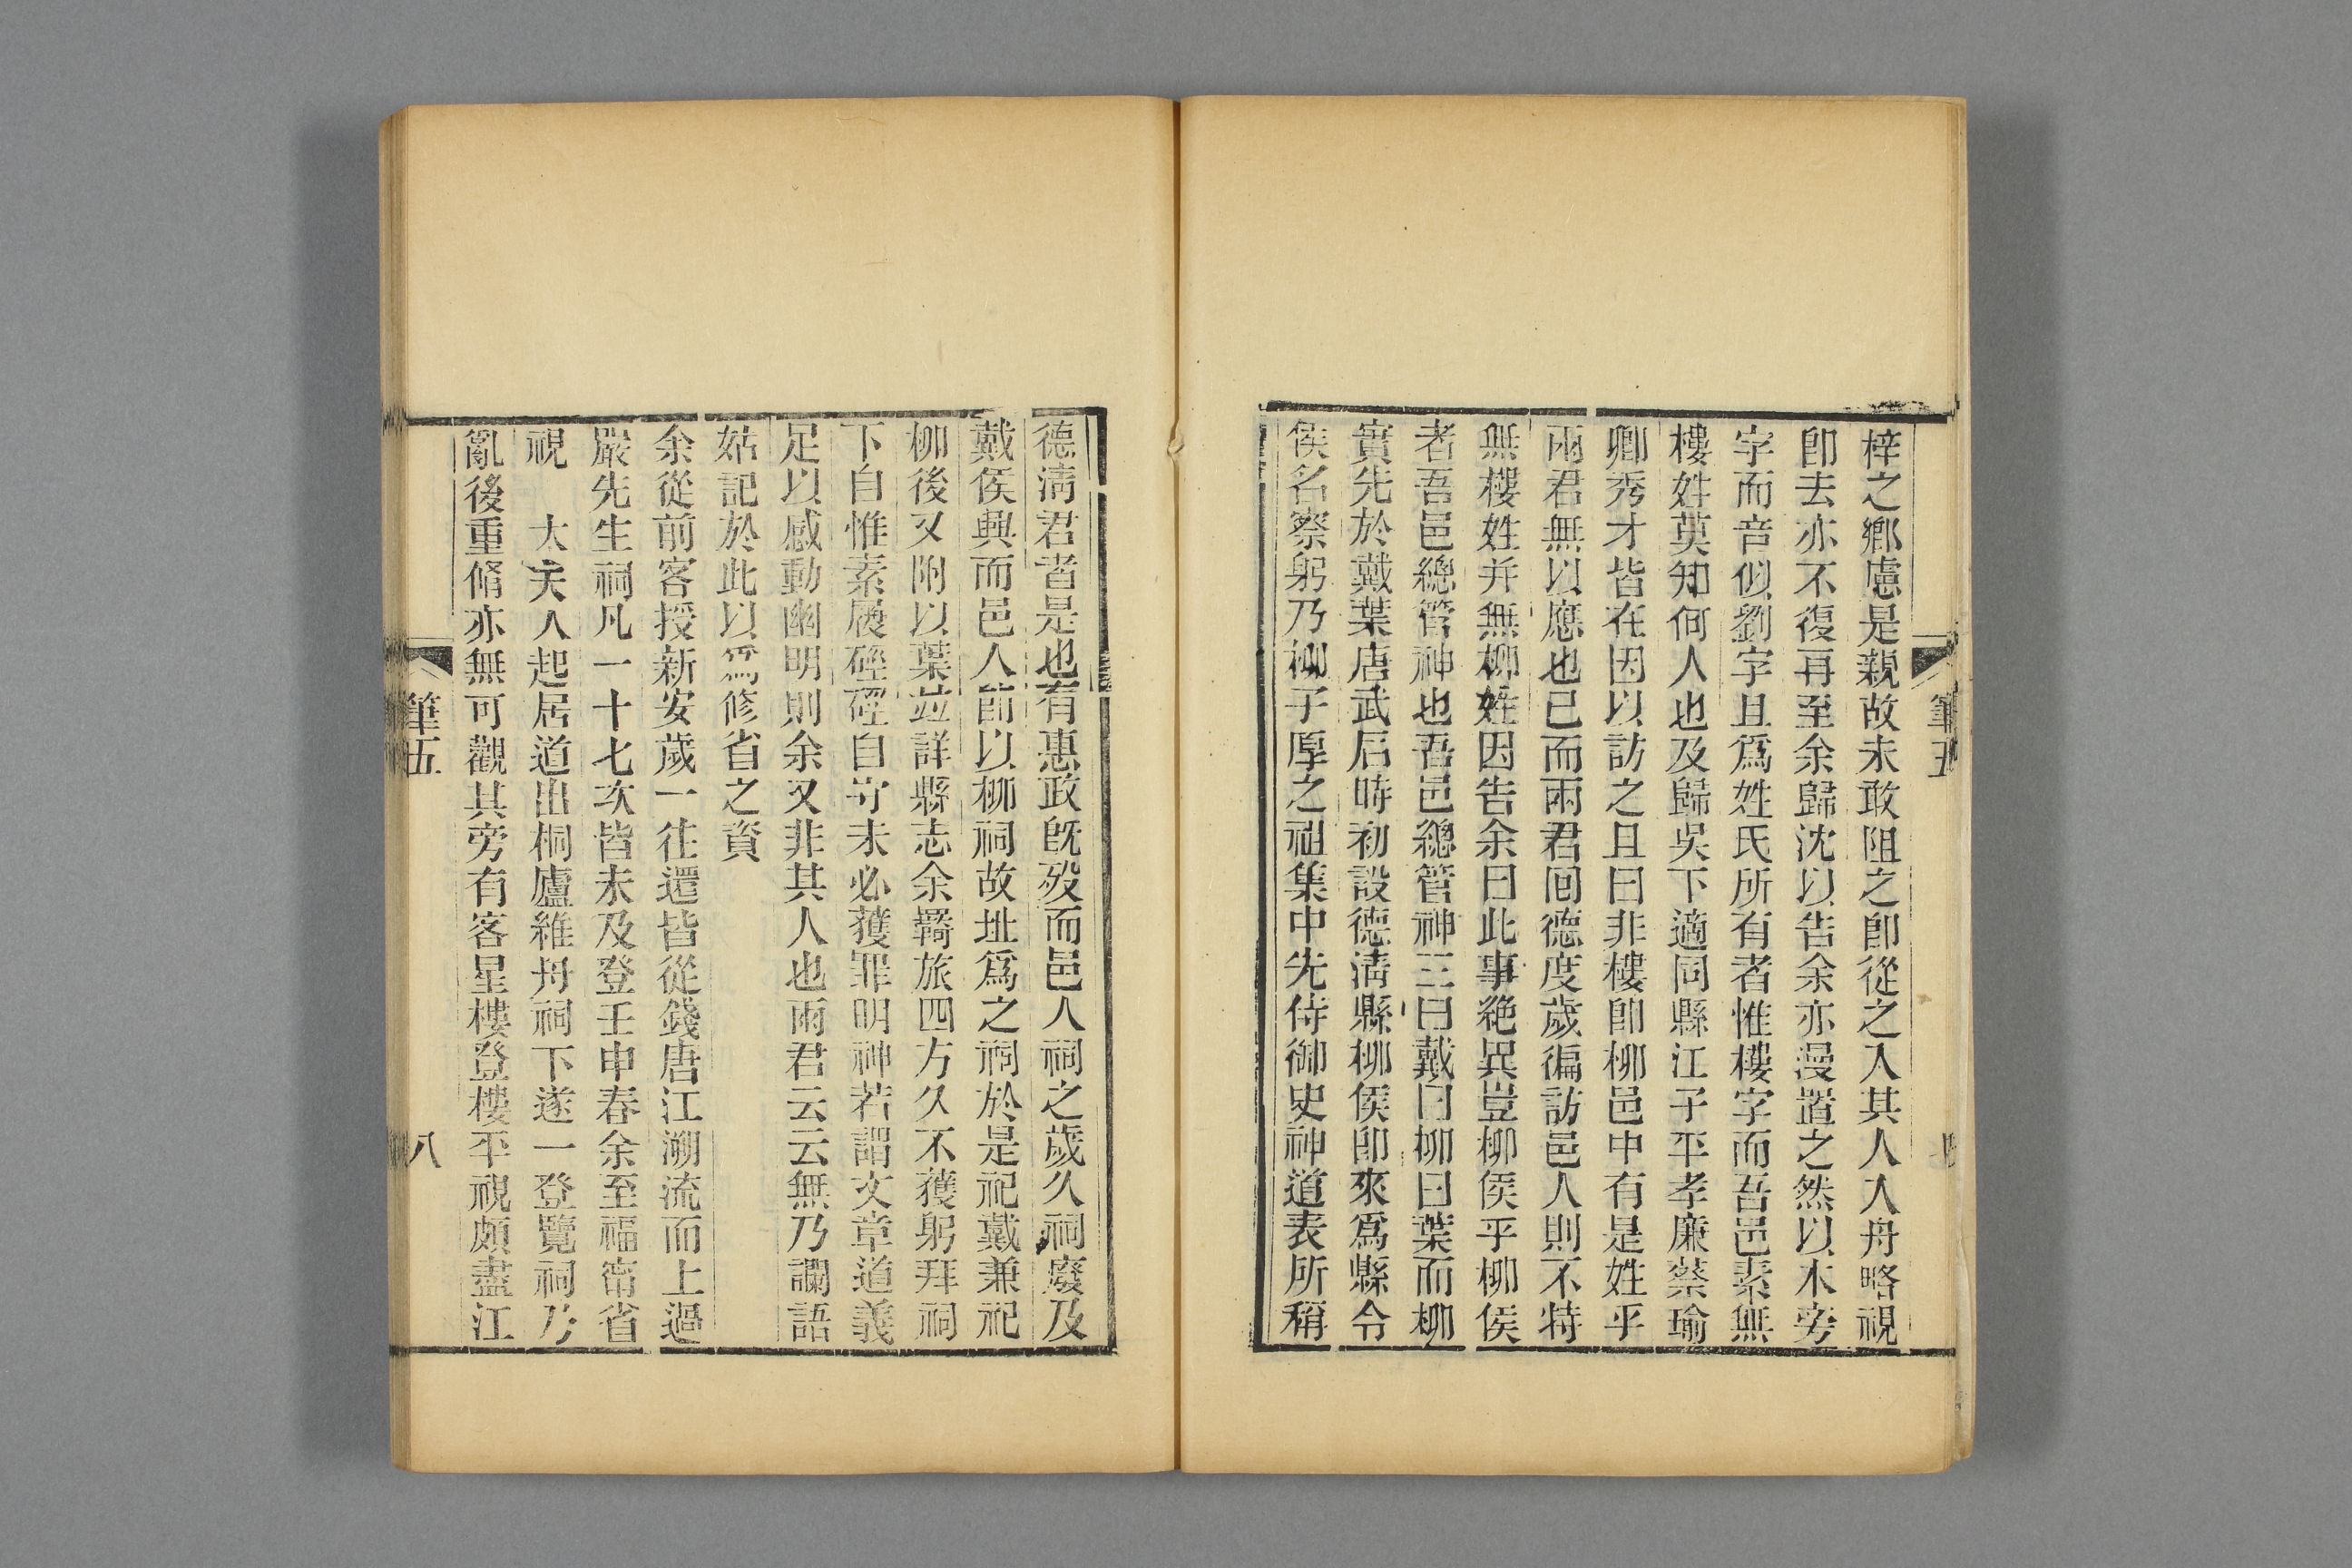 梓之鄉慮是親故未敢阻之卽從之入其人入舟略視
卽去亦不復再至余歸沈以告余亦漫置之然以木旁
字而音似劉字且爲姓氏所有者惟樓字而吾邑素無
樓姓莫知何人也及歸吳下適同縣江子平孝廉蔡瑜
卿秀才皆在因以訪之且曰非樓卽柳邑中有是姓乎
兩君無以應也已而兩君囘德度歲徧訪邑人則不特
無樓姓并無柳姓因告余曰此事絶異豈柳侯乎柳侯
者吾邑總管神也吾邑總管神三曰戴曰柳曰葉而柳
實先於戴葉唐武后時初設德淸縣柳侯卽來爲縣令
侯名察躬乃柳子厚之祖集中先侍御史神道表所稱
筆五
德淸君者是也有惠政旣歿而邑人祠之歲久祠廢及
戴侯興而邑人卽以柳祠故址爲之祠於是祀戴兼祀
柳後又附以葉竝詳縣志余羇旅四方久不獲躬拜祠
下自惟素履硜硜自守未必獲罪明神若謂文章道義
足以感動幽明則余又非其人也兩君云云無乃讕語
姑記於此以爲修省之資
余從前客授新安歲一往還皆從錢唐江溯流而上過
嚴先生祠凡一十七次皆未及登壬申春余至福甯省
視　太夫人起居道出桐廬維舟祠下遂一登覽祠乃
亂後重脩亦無可觀其旁有客星樓登樓平視頗盡江
筆五
八